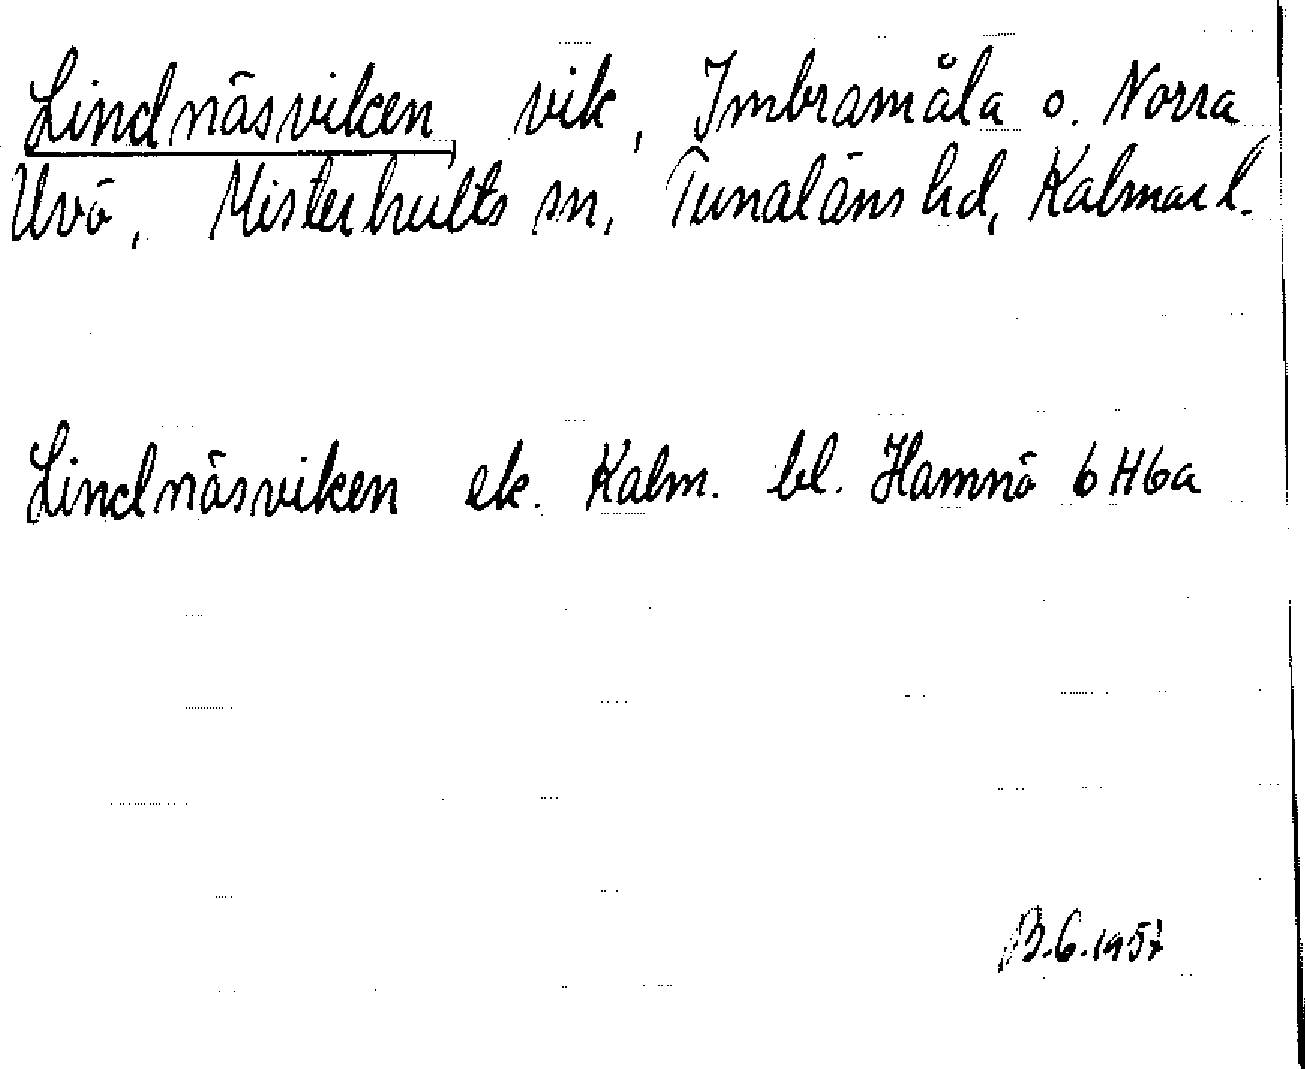 Lindnäsviken, vik, Imbramåla o. Norra
Uvö, Misterhults sn, Tunaläns hd, Kalmar l.
Lindnäsviken ek. Kalm. bl. Hamnö 6H6a
B.G. 1957